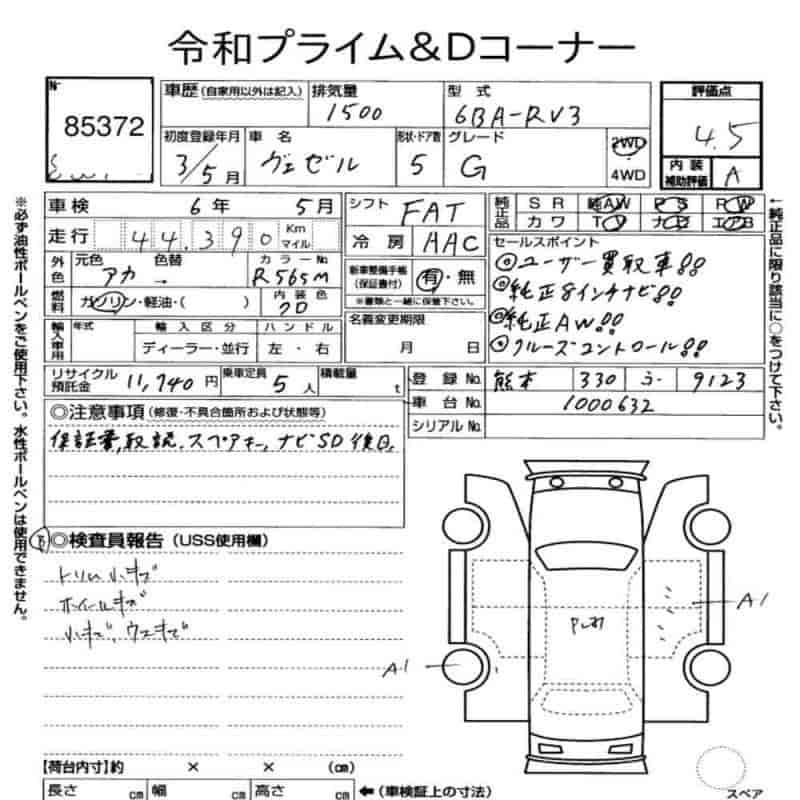 令和プライム&Dコーナー
85372
車歴 (自家用以外は記入) 排気量 1500 型式 6BA-RV3
初度登録年月 3/5月 車名 ヴェゼル 形状・ドア数 5 グレード G 2WD 4WD
評価点 4.5
内装補助評価 A
車検 6年 5月
走行 44,390 Km マイル
外色 元色 アカ 色替 カラーNo R565M
燃料 ガソリン・軽油・( ) 内装色 クロ
輸入車用 年式 輸入区分 ディーラー・並行 ハンドル 左・右
シフト FAT
冷房 AAC
新車整備手帳(保証書付) 有・無
※書類と一緒に保管下さい。
名義変更期限 月 日
純正品 SR 純AW PS PW
カワ TV ナビ エアB
セールスポイント
◎ユーザー買取車!!
◎純正8インチナビ!!
◎純正AW!!
◎クルーズコントロール!!
リサイクル預託金 11,740円 乗車定員 5人 積載量 t
登録No. 熊本 330 ふ 9123
車台No. 1000632
シリアルNo.
◎注意事項(修復・不具合箇所および状態等)
保証書,取説,スペアキー,ナビSD後日
◎検査員報告(USS使用欄)
トリム小キズ
ホイールキズ
小キズ,ウスキズ
A1
A1
【荷台内寸】約 × × (cm)
長さ cm 幅 cm 高さ cm ←(車検証上の寸法)
スペア
※必ず油性ボールペンをご使用下さい。水性ボールペンは使用できません。
←純正品に限り該当に○をつけて下さい。